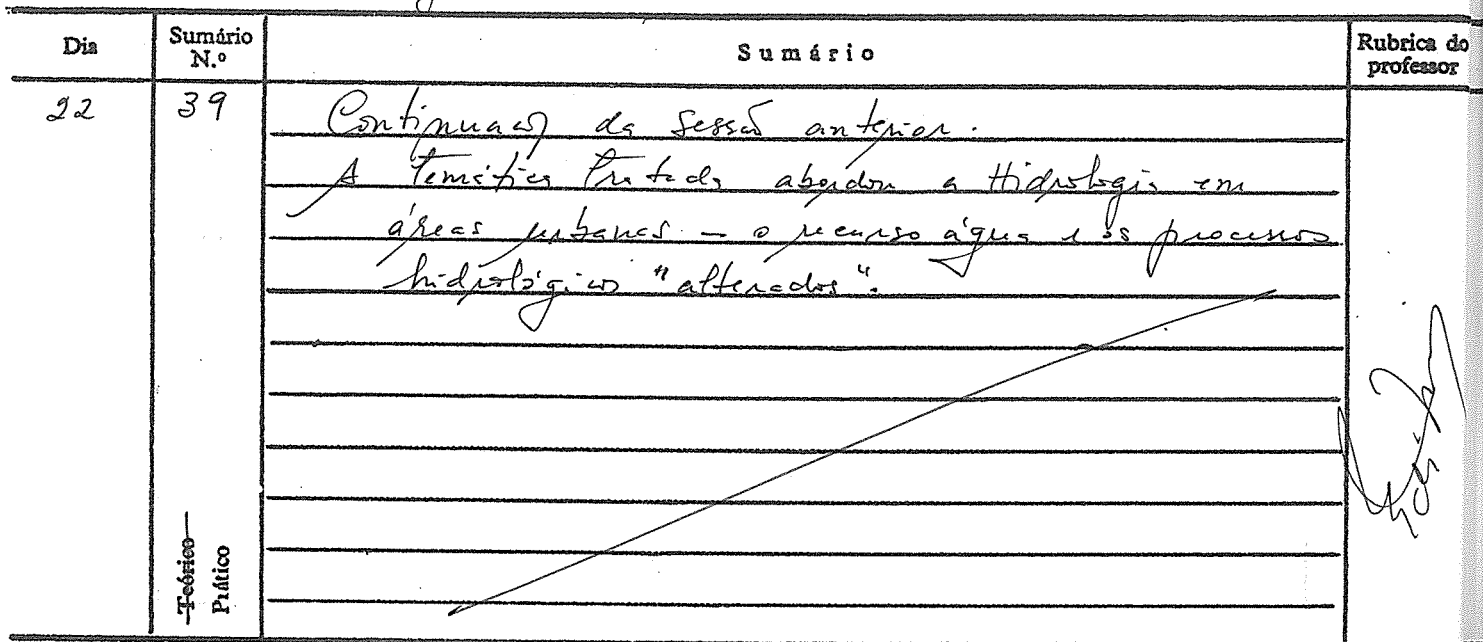 Dia
Sumário N.º
Sumário
Rubrica do professor
22
39
Continuação da sessão anterior.
A temática tratada abordou a Hidrologia em
áreas urbanas – o recurso água e os processos
hidrológicos "alterados".
Teórico
Prático